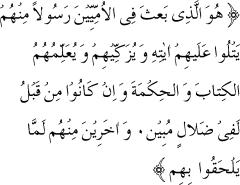 ﴿ هُوَ الَّذِى بَعَثَ فِى الاُمِّيّينَ رَسُولاً مِنْهُمْ
يَتْلُوا عَلَيهِمْ ايٰتِهِ وَ يُزَكّيهِمْ وَ يُعَلّمُهُمُ
الكِتابَ وَ الحِكْمَةَ وَ اِنْ كَانُوا مِنْ قَبْلُ
لَفِى ضَلالٍ مُبِين، وَ اخَرِينَ مِنْهُم لَمَّا
يَلْحَقُوا بِهِم ﴾